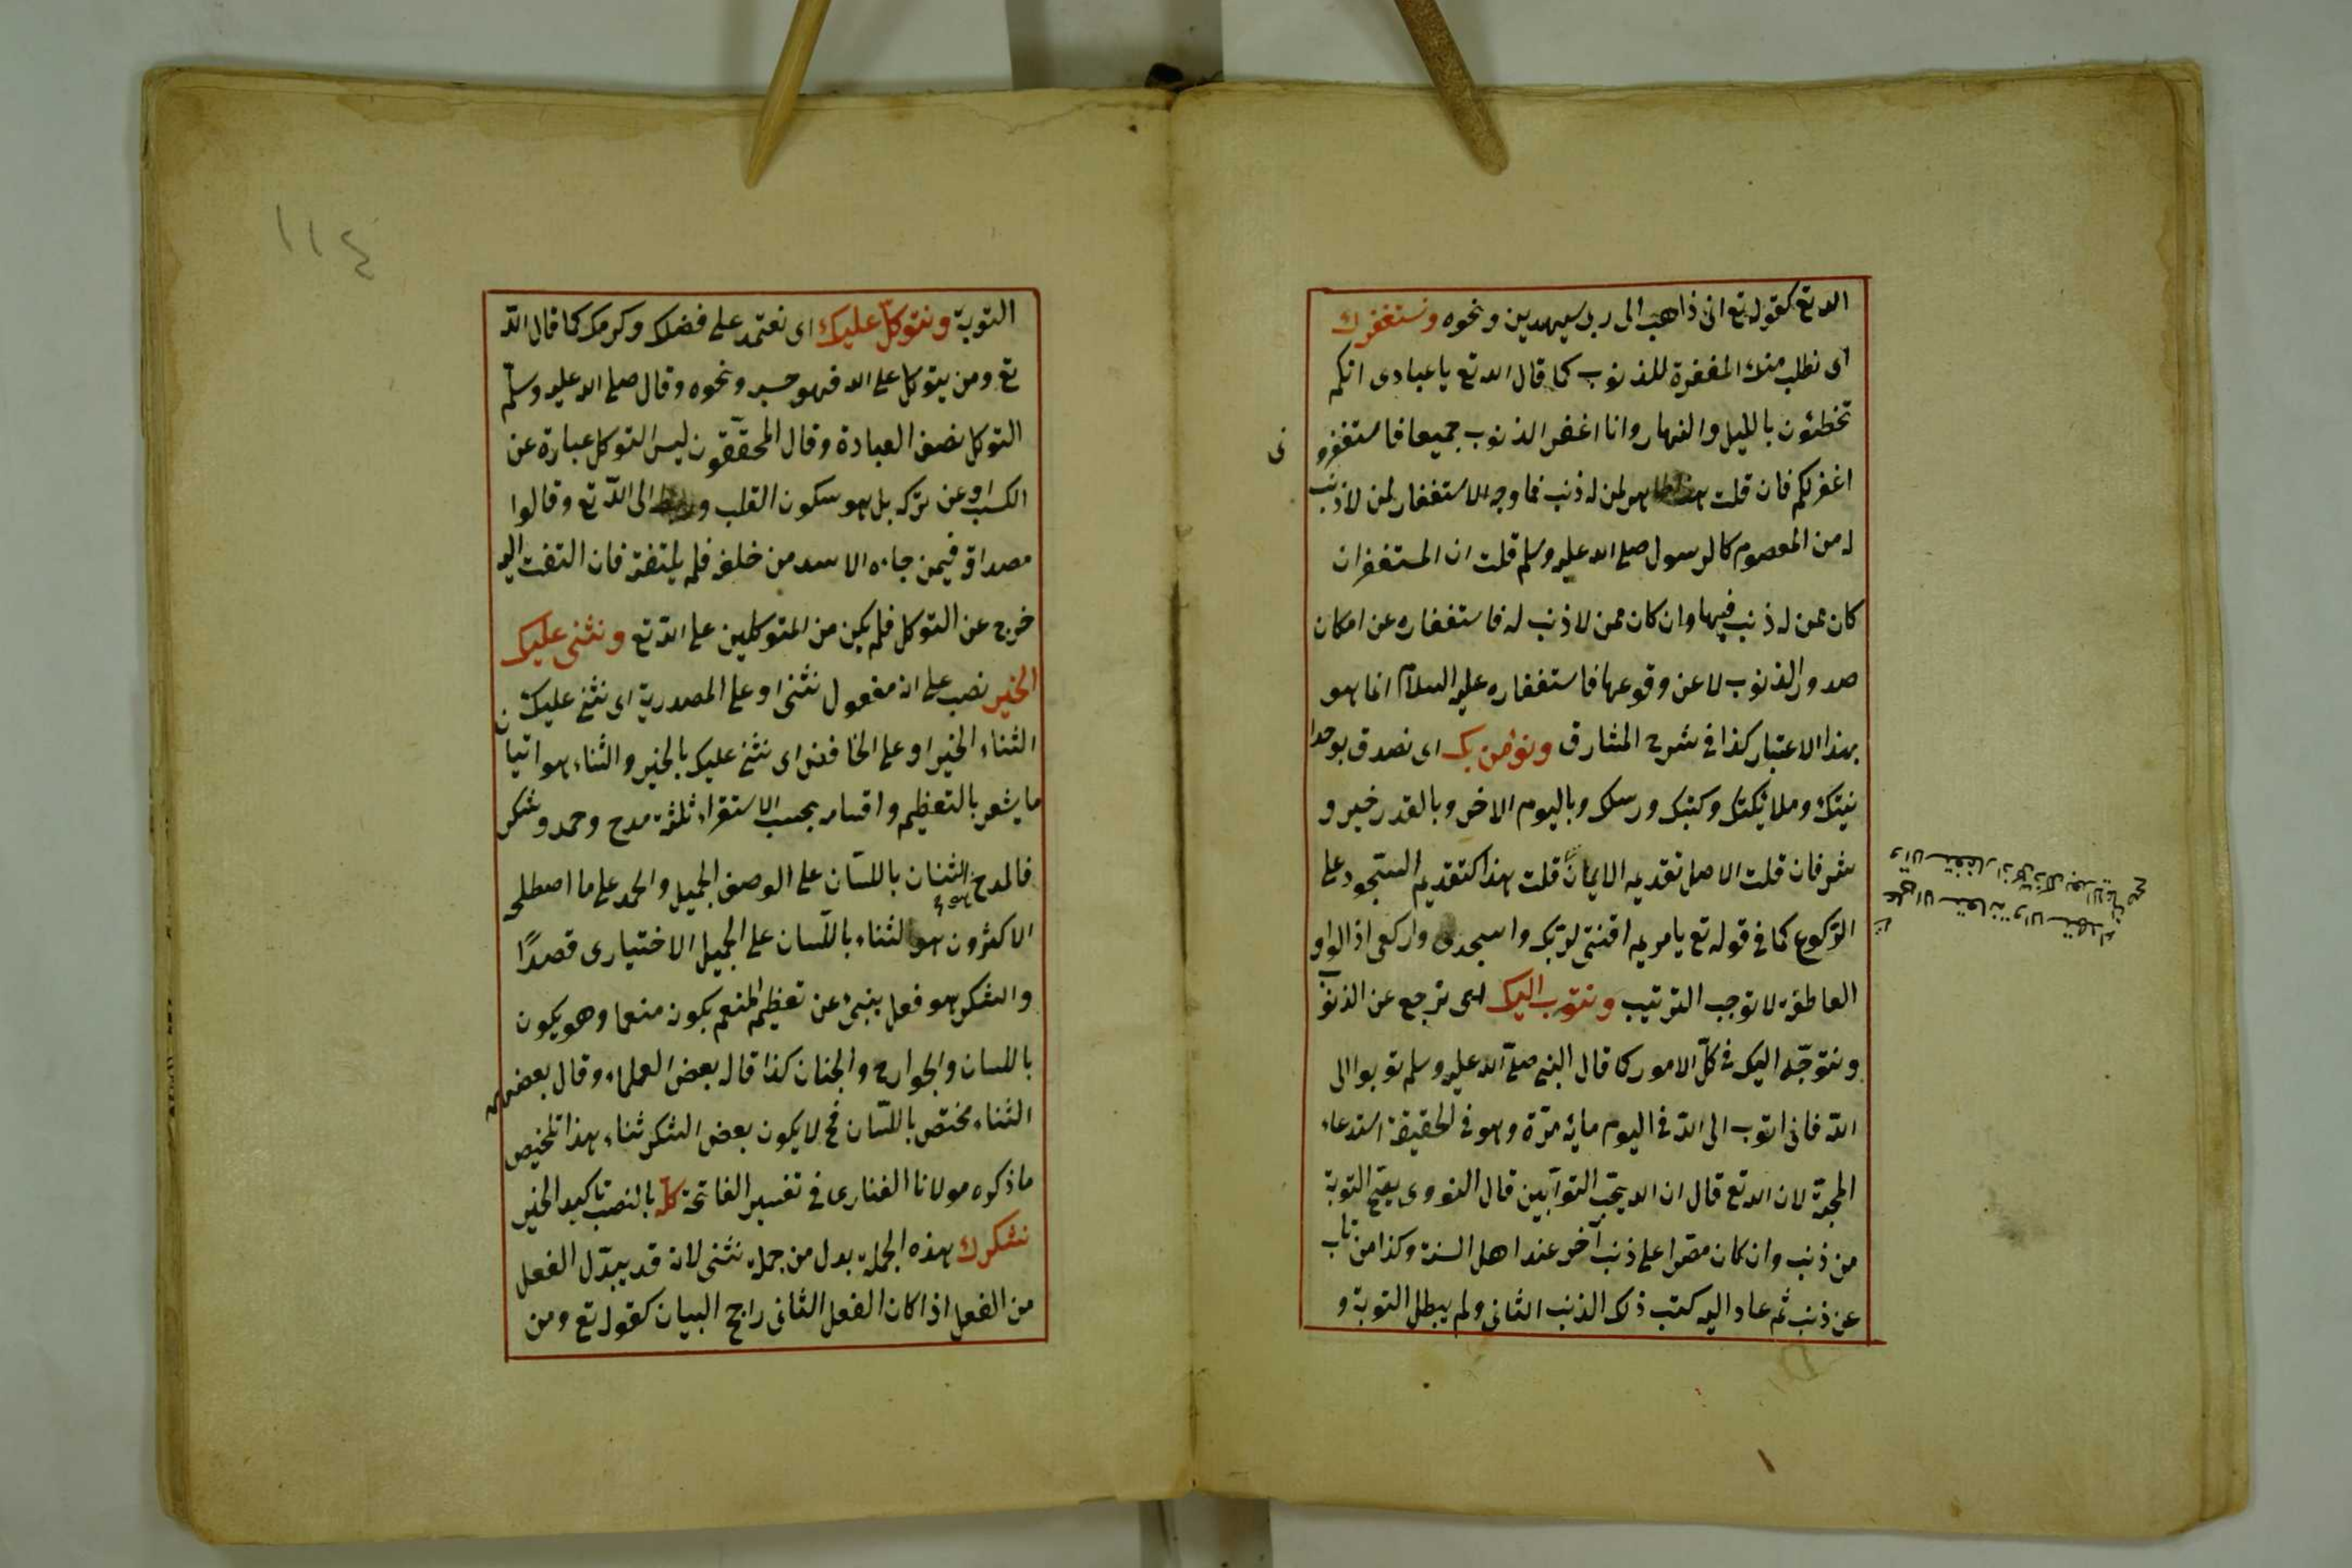 الله تع كقوله تع انى ذاهب الى ربى سيهدين ونحوه ونستغفرك
اى نطلب منك المغفرة للذنوب كما قال الله تع يا عبادى انكم
تخطئون بالليل والنهار وانا اغفر الذنوب جميعا فاستغفرو
نى
اغفر لكم فان قلت هذا ظاهر لمن له ذنب فما وجه الاستغفار لمن لا ذنب
له من المعصوم كالرسول صلى الله عليه وسلم قلت ان المستغفر ان
كان ممن له ذنب فبها وان كان ممن لا ذنب له فاستغفاره عن امكان
صدور الذنوب لا عن وقوعها فاستغفاره عليه السلام انما هو
بهذا الاعتبار كذا فى شرح المشارق ونؤمن بك اى نصدق بوحدا
نيتك وملائكتك وكتبك ورسلك وباليوم الاخر وبالقدر خيره و
شره فان قلت الاصل تقديم الايمان قلت هذا كتقديم السجود على
الركوع كما فى قوله تع يا مريم اقنتى لربك واسجدى واركعى اذ الواو
العاطفة لا توجب الترتيب ونتوب اليك اى نرجع عن الذنوب
ونتوجه اليك فى كل الامور كما قال النبى صلى الله عليه وسلم توبوا الى
الله فانى اتوب الى الله فى اليوم مائة مرة وهو فى الحقيقة استدعاء
المحبة لان الله تع قال ان الله يحب التوابين قال النووى يقبح التوبة
من ذنب وان كان مصرا على ذنب آخر عند اهل السنة وكذا من تاب
عن ذنب ثم عاد اليه كتب ذلك الذنب الثانى ولم يبطل التوبة و
على الاستعانة والاستهداء
والاستغفار
١١٤
التوبة ونتوكل عليك اى نعتمد على فضلك وكرمك كما قال الله
تع ومن يتوكل على الله فهو حسبه ونحوه وقال صلى الله عليه وسلم
التوكل نصف العبادة وقال المحققون ليس التوكل عبارة عن
الكسب او عن تركه بل هو سكون القلب الى الله تع وقالوا
مصداقه فيمن جاءه الاسد من خلفه فلم يلتفت فان التفت اليه
خرج عن التوكل فلم يكن من المتوكلين على الله تع ونثنى عليك
الخير نصب على انه مفعول نثنى او على المصدرية اى نثنى عليك
الثناء الخير او على الخافض اى نثنى عليك بالخير والثناء هو اتيان
ما يشعر بالتعظيم واقسامه بحسب الاستقراء ثلثة مدح وحمد وشكر
فالمدح هو الثناء باللسان على الوصف الجميل والحمد على ما اصطلح
الاكثرون هو الثناء باللسان على الجميل الاختيارى قصدًا
والشكر هو فعل ينبئ عن تعظيم المنعم بكونه منعما وهو يكون
باللسان والجوارح والجنان كذا قاله بعض العلماء وقال بعضهم
الثناء مختص باللسان فح لا يكون بعض الشكر ثناء هذا تلخيص
ما ذكره مولانا الفنارى فى تفسير الفاتحة كله بالنصب تاكيد الخير
نشكرك هذه الجملة بدل من جملة نثنى لانه قد يبدل الفعل
من الفعل اذا كان الفعل الثانى راجح البيان كقوله تع ومن